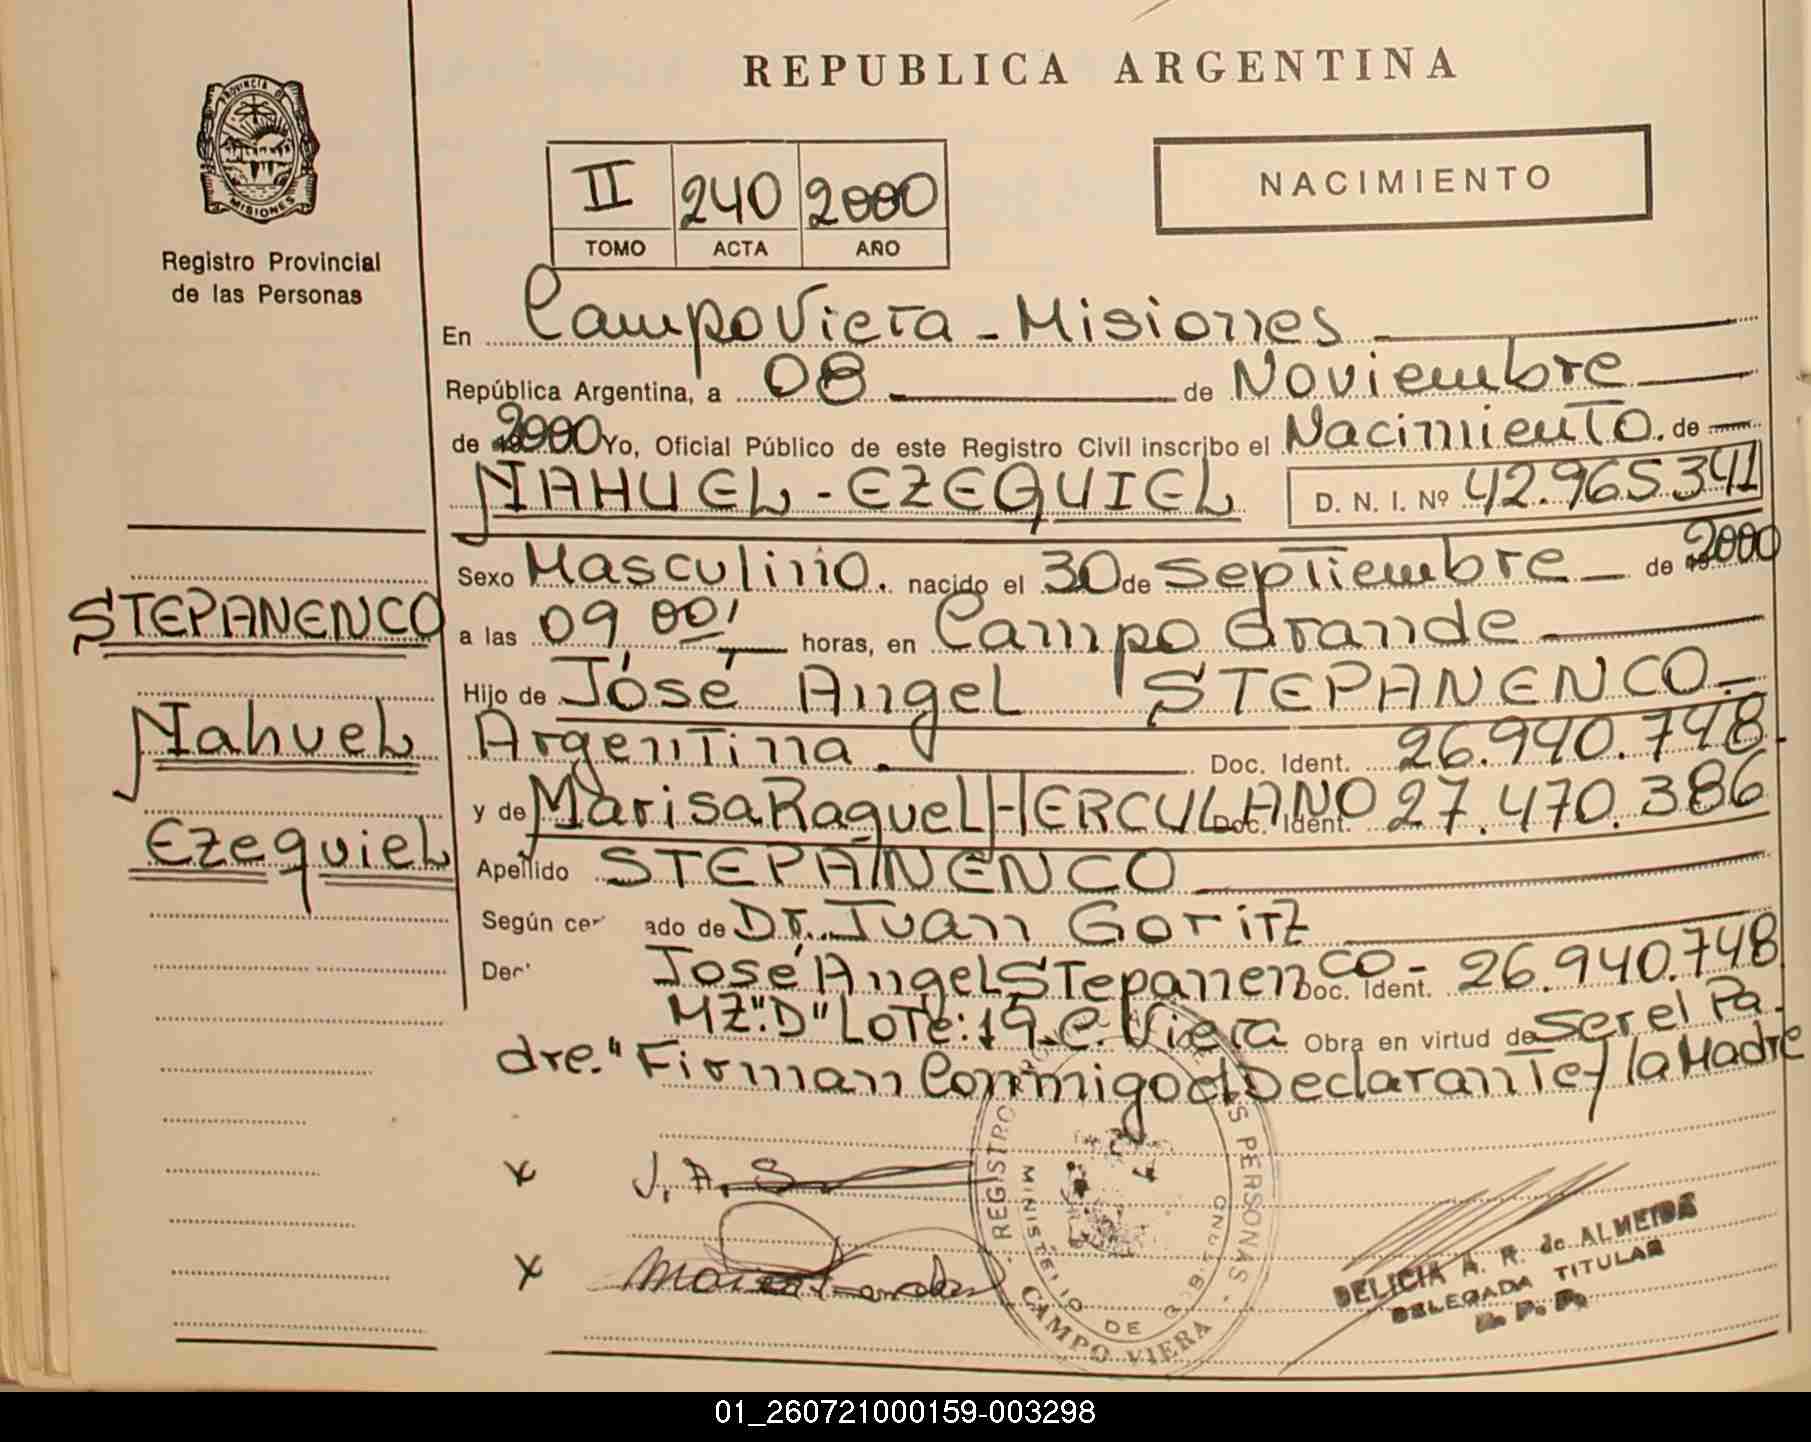 REPUBLICA ARGENTINA
PROVINCIA DE
MISIONES
Registro Provincial
de las Personas
II 240 2000
TOMO ACTA AÑO
NACIMIENTO
En Campo Viera - Misiones
República Argentina, a 08 de Noviembre
de 2000 Yo, Oficial Público de este Registro Civil inscribo el Nacimiento. de
NAHUEL - EZEQUIEL D. N. I. Nº 42.965.341
Sexo Masculino. nacido el 30 de Septiembre de 2000
a las 09 00' horas, en Campo Grande
Hijo de José Angel STEPANENCO.
Argentina Doc. Ident. 26.940.748
y de Marisa Raquel HERCULANO Doc. Ident. 27.470.386
Apellido STEPANENCO
Según cer ado de Dr. Juan Goritz
Dec José Angel Stepanenco - Doc. Ident. 26.940.748
MZ: "D" LoTe: 19 - C. Viera Obra en virtud de Ser el Pa-
dre." Firman Conmigo el Declarante y la Madre
STEPANENCO
Nahuel
Ezequiel
x J. A. S
x
REGISTRO PERSONAS
MINISTERIO DE GOBIERNO
CAMPO VIERA
DELICIA A. R. de ALMEIDA
DELEGADA TITULAR
R. P. P.
01_260721000159-003298